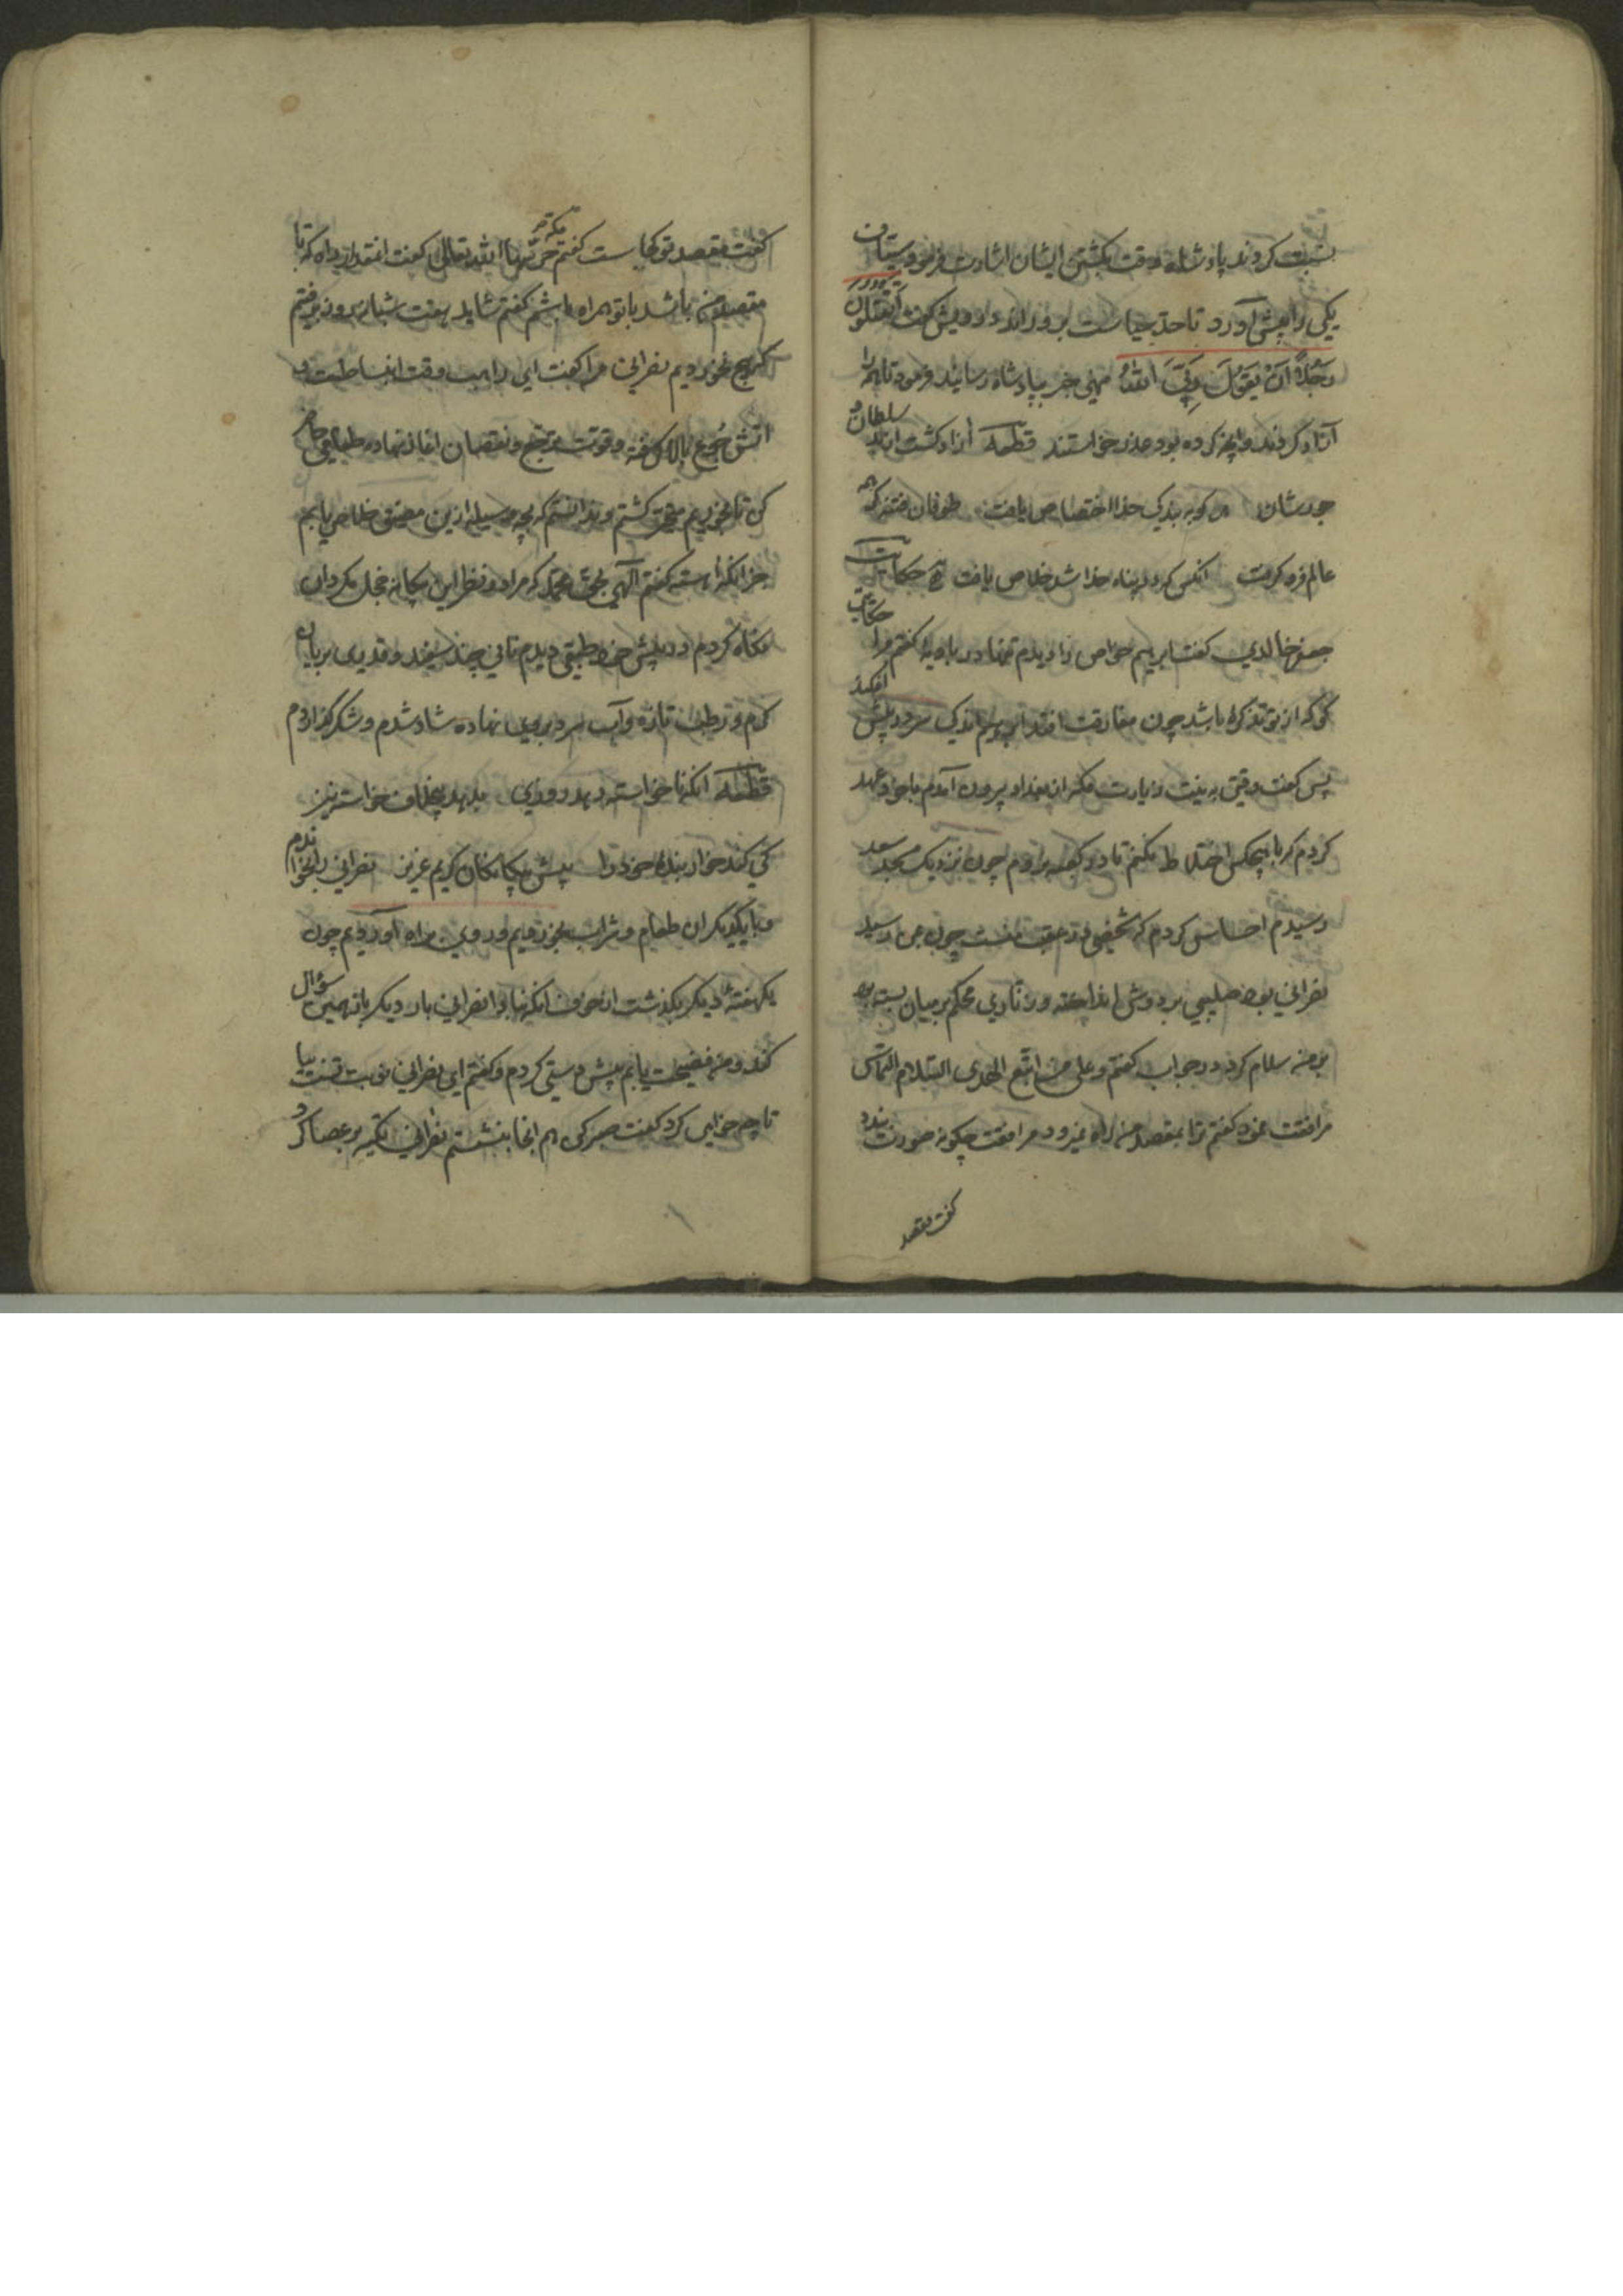 نسبت کردند پادشاه وقت بکشتن ایشان اشارت فرمود سیاف
یکی را پیش آورد تا حد سیاست برو راند درویش گفت اتقتلون
رجلا ان یقول ربی الله منهی خبر بپادشاه رسانید فرمود تا همه را
آزاد کردند و آنچه کرده بود عذر خواستند قطعه آزاد گشت از بد سلطان و
جورشان هر کو به بندگی خدا اختصاص یافت طوفان فتنه گر همه
عالم فرو گرفت آنکس که در پناه خدا شد خلاص یافت حکایت
حکایت
جعفر خالدی گفت ابرهیم خواص را دیدم تنها در بادیه گفتم مرا
کن که از تو تذکره باشد چون مفارقت افتد ابرهیم اندکی سر در پیش افکند
پس گفت وقتی به نیت زیارت مکه از بغداد بیرون آمدم با خود عهد
کردم که با هیچکس اختلاط نکنم تا در کعبه نروم چون نزدیک مسجد سعد
رسیدم احساس کردم که شخصی در عقب منست چون بمن رسید
نصرانی بود صلیبی بر دوش انداخته و زناری محکم بر میان بسته بود
بر من سلام کرد در جواب گفتم و علی من اتبع الهدی السلام التماس
مرافقت نمود گفتم ترا بمقصد من راه نبود مرافقت چگونه صورت بندد
گفت مقصد
گفت مقصد تو کجاست گفتم مکه حرسها الله تعالی گفت آنقدر از راه که تا
مقصد من باشد با تو همراه باشم گفتم شاید هفت شبانروز برفتم
که هیچ نخوردیم نصرانی مرا گفت ای راهب وقت انبساطست
آتش جوع بالا گرفته و قوت و نقصان آغاز نهاده طعامی حاضر
کن تا بخوریم متحیر گشتم و ندانستم که بچه وسیله ازین مضیق خلاص یابم
جز آنکه آهسته گفتم الهی بحق محمد که مرا در نظر این بیگانه خجل مگردان
نگاه کردم در پیش خود طبقی دیدم نانی چند سفید و قدیدی بریان
گرم و رطب تازه و آب سرد بروی نهاده شاد شدم و شکر گزاردم
قطعه آنکه ناخواسته دهد روزی بدهد بیخلاف خواسته نیز
کی کند خوار بنده خود را پیش بیگانگان کریم عزیز نصرانی را بخواندم
و با یکدیگر آن طعام و شراب بخوردیم و روی براه آوردیم چون
یکهفته دیگر بگذشت از خوف آنکه مبادا نصرانی بار دیگر باز همین سؤال
کند و من فضیحت یابم پیش دستی کردم و گفتم ای نصرانی نوبت تست بیا
تا چه خواهی کرد گفت صبر کن هم آنجا بنشستم نصرانی تکیه بر عصا کرد